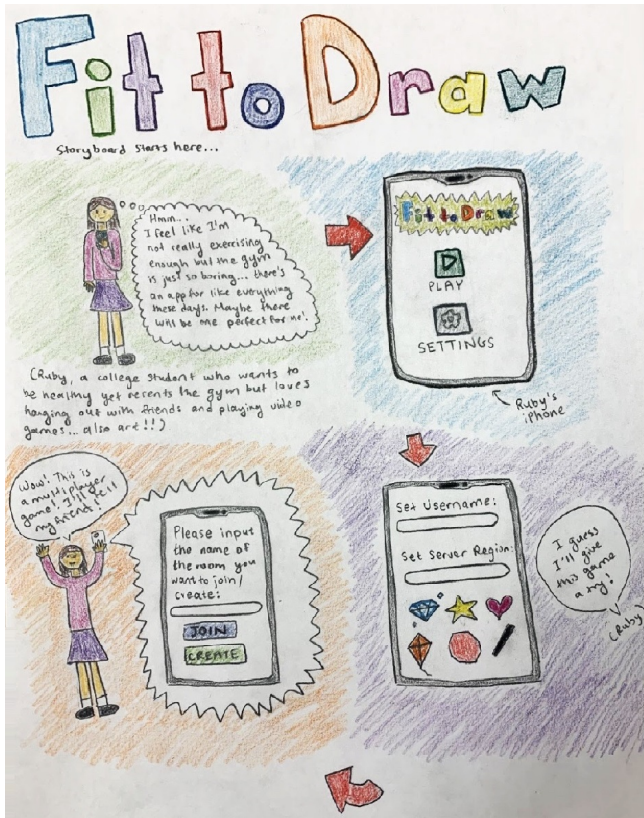 Fit to Draw
Storyboard starts here...
Hmm...
I feel like I'm
not really exercising
enough but the gym
is just so boring... there's
an app for like everything
these days. Maybe there
will be one perfect for me!
(Ruby, a college student who wants to
be healthy yet resents the gym but loves
hanging out with friends and playing video
games... also art!!)
Fit to Draw
PLAY
SETTINGS
Ruby's
iPhone
Set Username:
Set Server Region:
I guess
I'll give
this game
a try!
(Ruby
Wow! This is
a multiplayer
game! I'll tell
my friend!
Please input
the name of
the room you
want to join/
create:
JOIN
CREATE